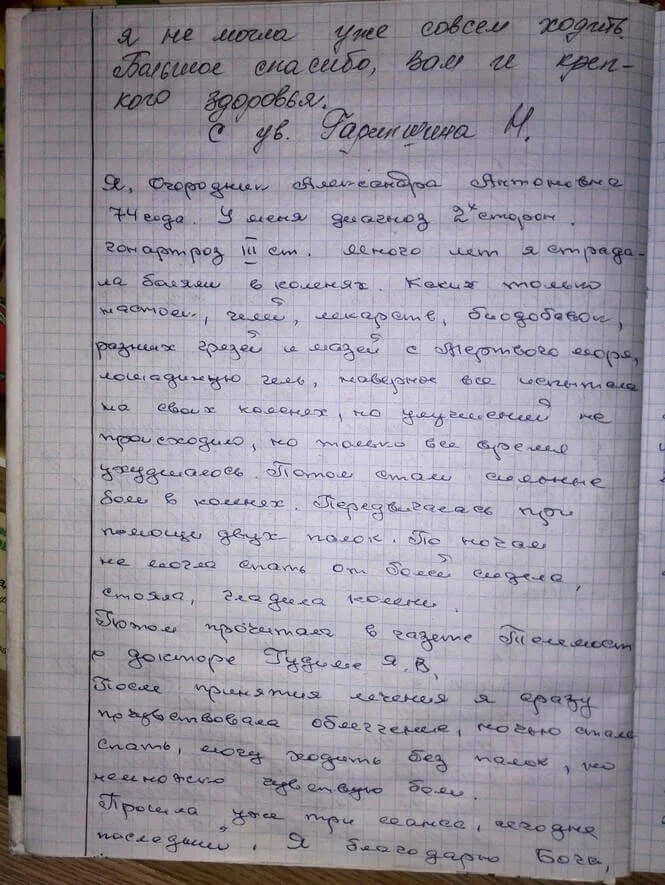 я не могла уже совсем ходить.
Большое спасибо, вам и креп-
кого здоровья.
С ув. Гарипичина Н.
Я, Огородник Александра Антоновна
74 года. У меня диагноз 2х сторон.
гонартроз III ст. много лет я страда-
ла болями в коленях. Каких только
настоек, гелей, лекарств, биодобавок,
разных грязей и мазей с Мертвого моря,
лошадиную гель, наверное все испытала
на своих коленях, но улучшений не
происходило, но только все время
ухудшалось. Потом стали сильные
боли в коленях. Передвигалась при
помощи двух палок. По ночам
не могла спать от болей сидела,
стояла, гладила колени.
Потом прочитала в газете Телемост
о докторе Гудиме Я.В.
После принятия лечения я сразу
почувствовала облегчение, ночью стала
спать, могу ходить без палок, но
немножко чувствую боли.
Прошла уже три сеанса, сегодня
последний. Я благодарю Бога,